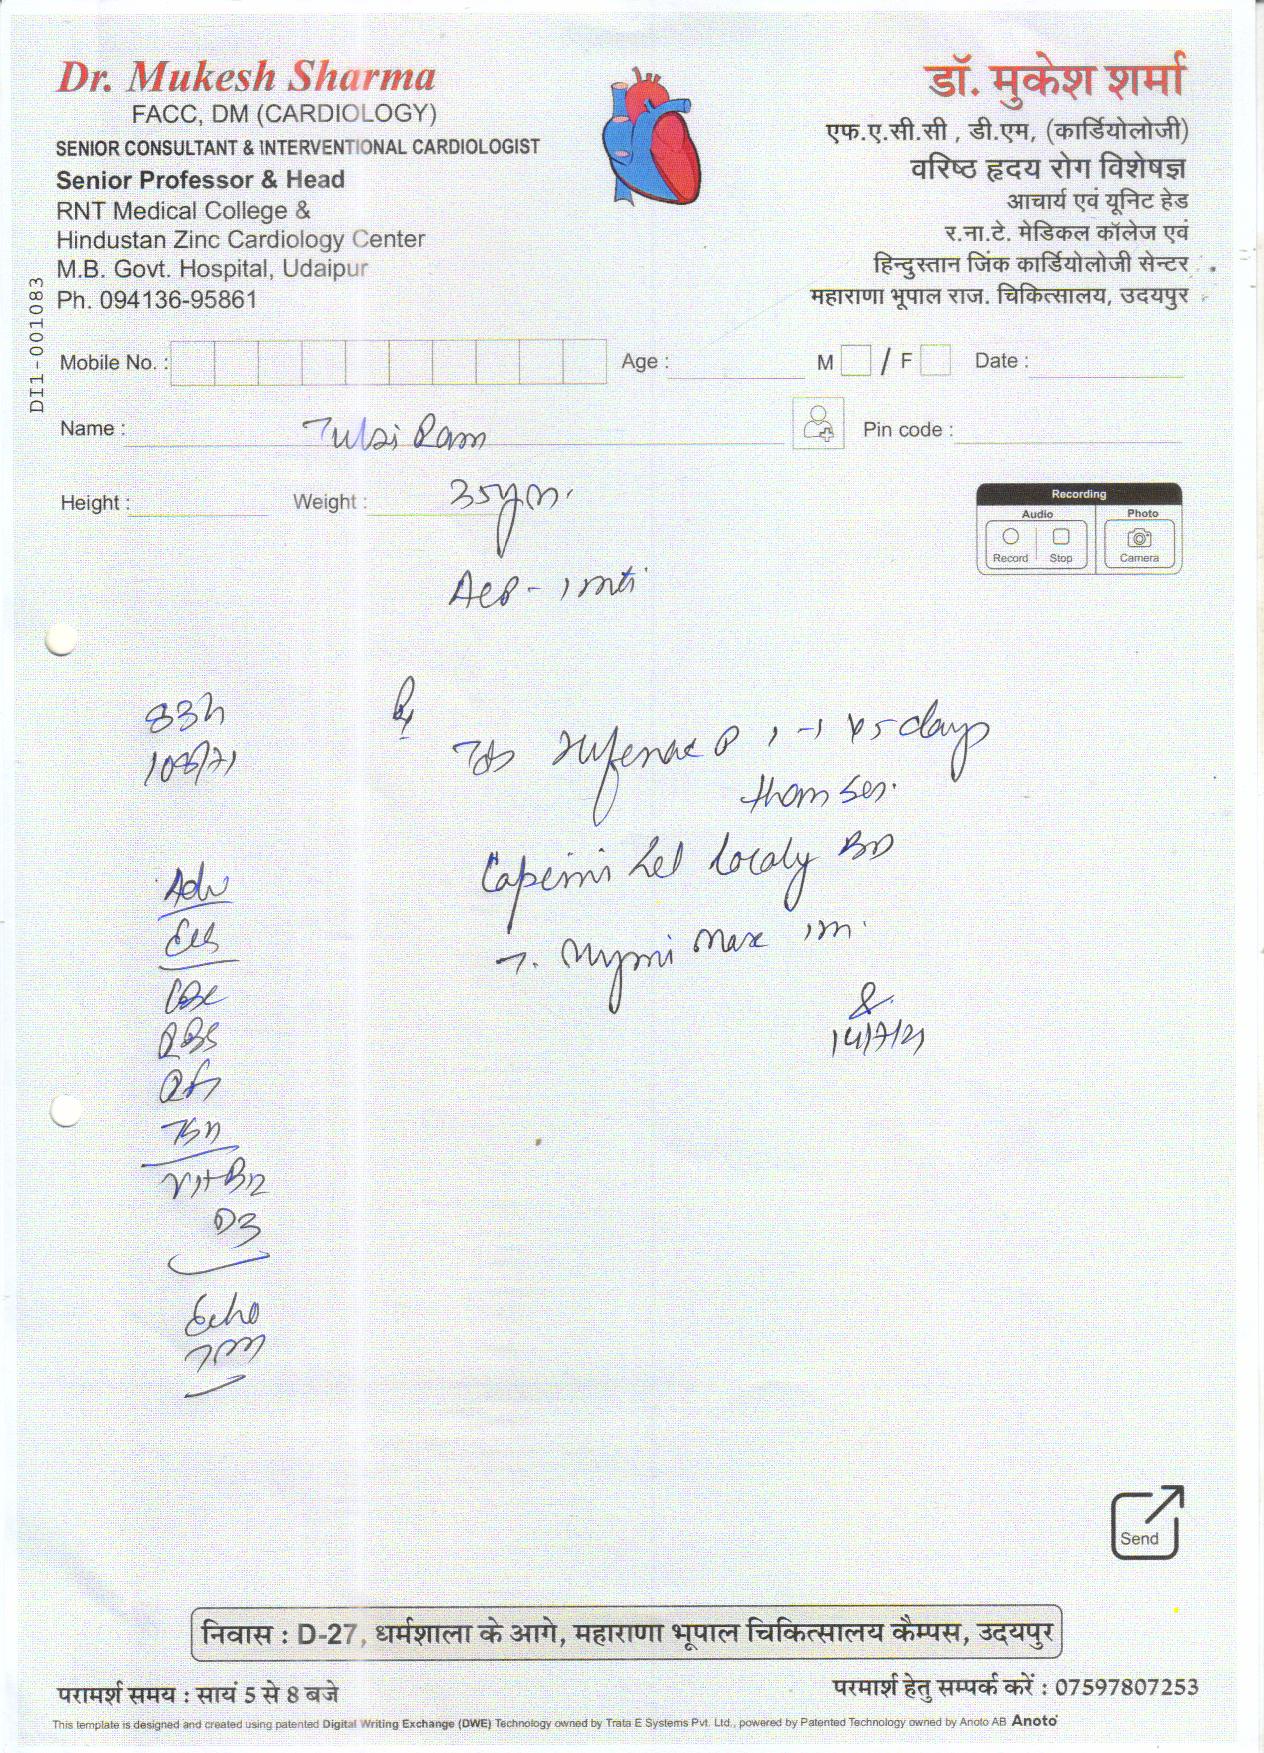 Dr. Mukesh Sharma
FACC, DM (CARDIOLOGY)
SENIOR CONSULTANT & INTERVENTIONAL CARDIOLOGIST
Senior Professor & Head
RNT Medical College &
Hindustan Zinc Cardiology Center
M.B. Govt. Hospital, Udaipur
Ph. 094136-95861
डॉ. मुकेश शर्मा
एफ.ए.सी.सी , डी.एम, (कार्डियोलोजी)
वरिष्ठ हृदय रोग विशेषज्ञ
आचार्य एवं यूनिट हेड
र.ना.टे. मेडिकल कॉलेज एवं
हिन्दुस्तान जिंक कार्डियोलोजी सेन्टर
महाराणा भूपाल राज. चिकित्सालय, उदयपुर
DI1-001083
Mobile No. : Age : M / F Date :
Name : Tulsi Ram Pin code :
Height : Weight : 35yrs.
Recording
Audio Photo
Record Stop Camera
83h
Rx
1-1 x 5 days
Locally BD
14/7/21
Adv
CBC
RBS
RFT
TSH
Vit B12
D3
Echo
Send
निवास : D-27, धर्मशाला के आगे, महाराणा भूपाल चिकित्सालय कैम्पस, उदयपुर
परामर्श समय : सायं 5 से 8 बजे
परमार्श हेतु सम्पर्क करें : 07597807253
This template is designed and created using patented Digital Writing Exchange (DWE) Technology owned by Trata E Systems Pvt. Ltd., powered by Patented Technology owned by Anoto AB Anoto